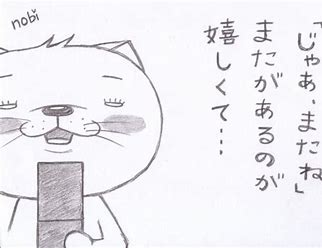 nobi
「じゃあ、またね」
またがあるのが
嬉しくて…